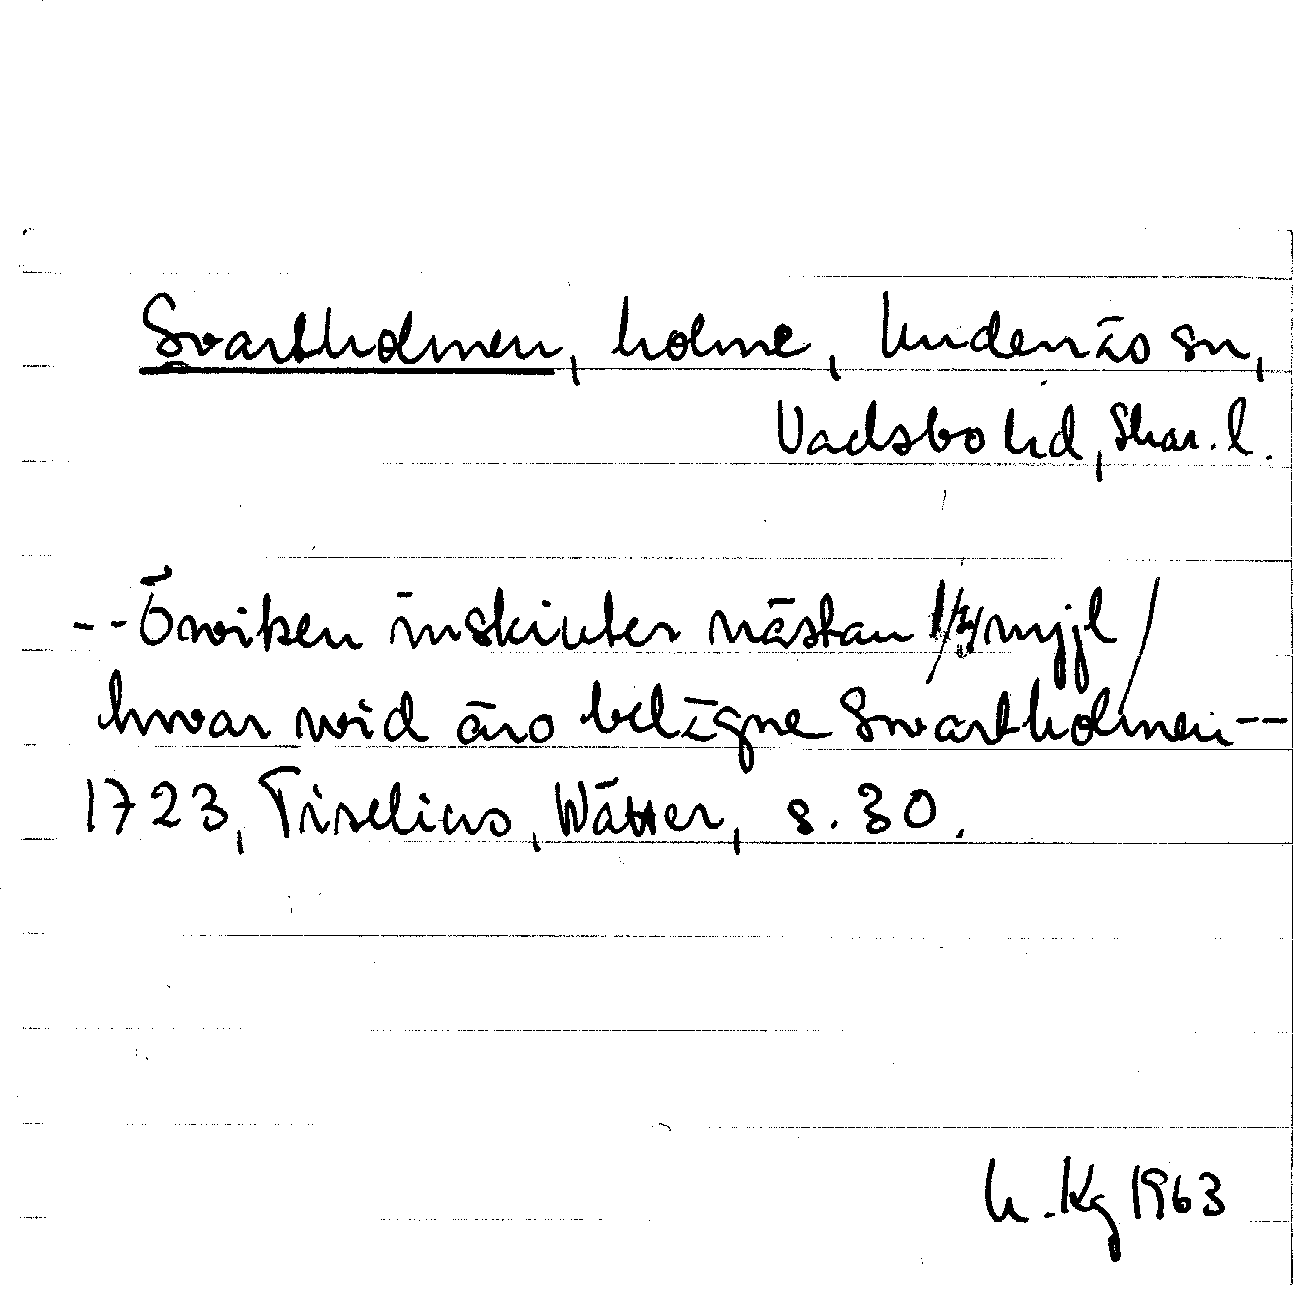 Svartholmen, holme, Undenäs sn,
Vadsbo hd, Skar. l.
--Öwiken inskiuter nästan 1/4 mijl/
hwar wid äro belägne Swartholmen--
1723, Tiselius, Wätter, s. 30.
U. Kg 1963